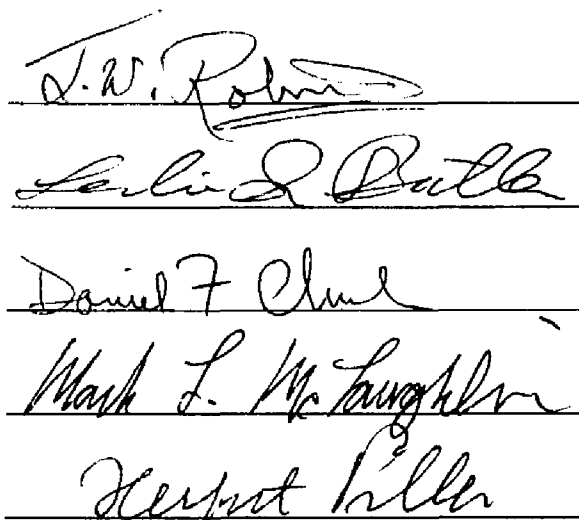 J. W. Robin
Leslie G Butler
Daniel F
Mark L. McLaughlin
Herbert Piller